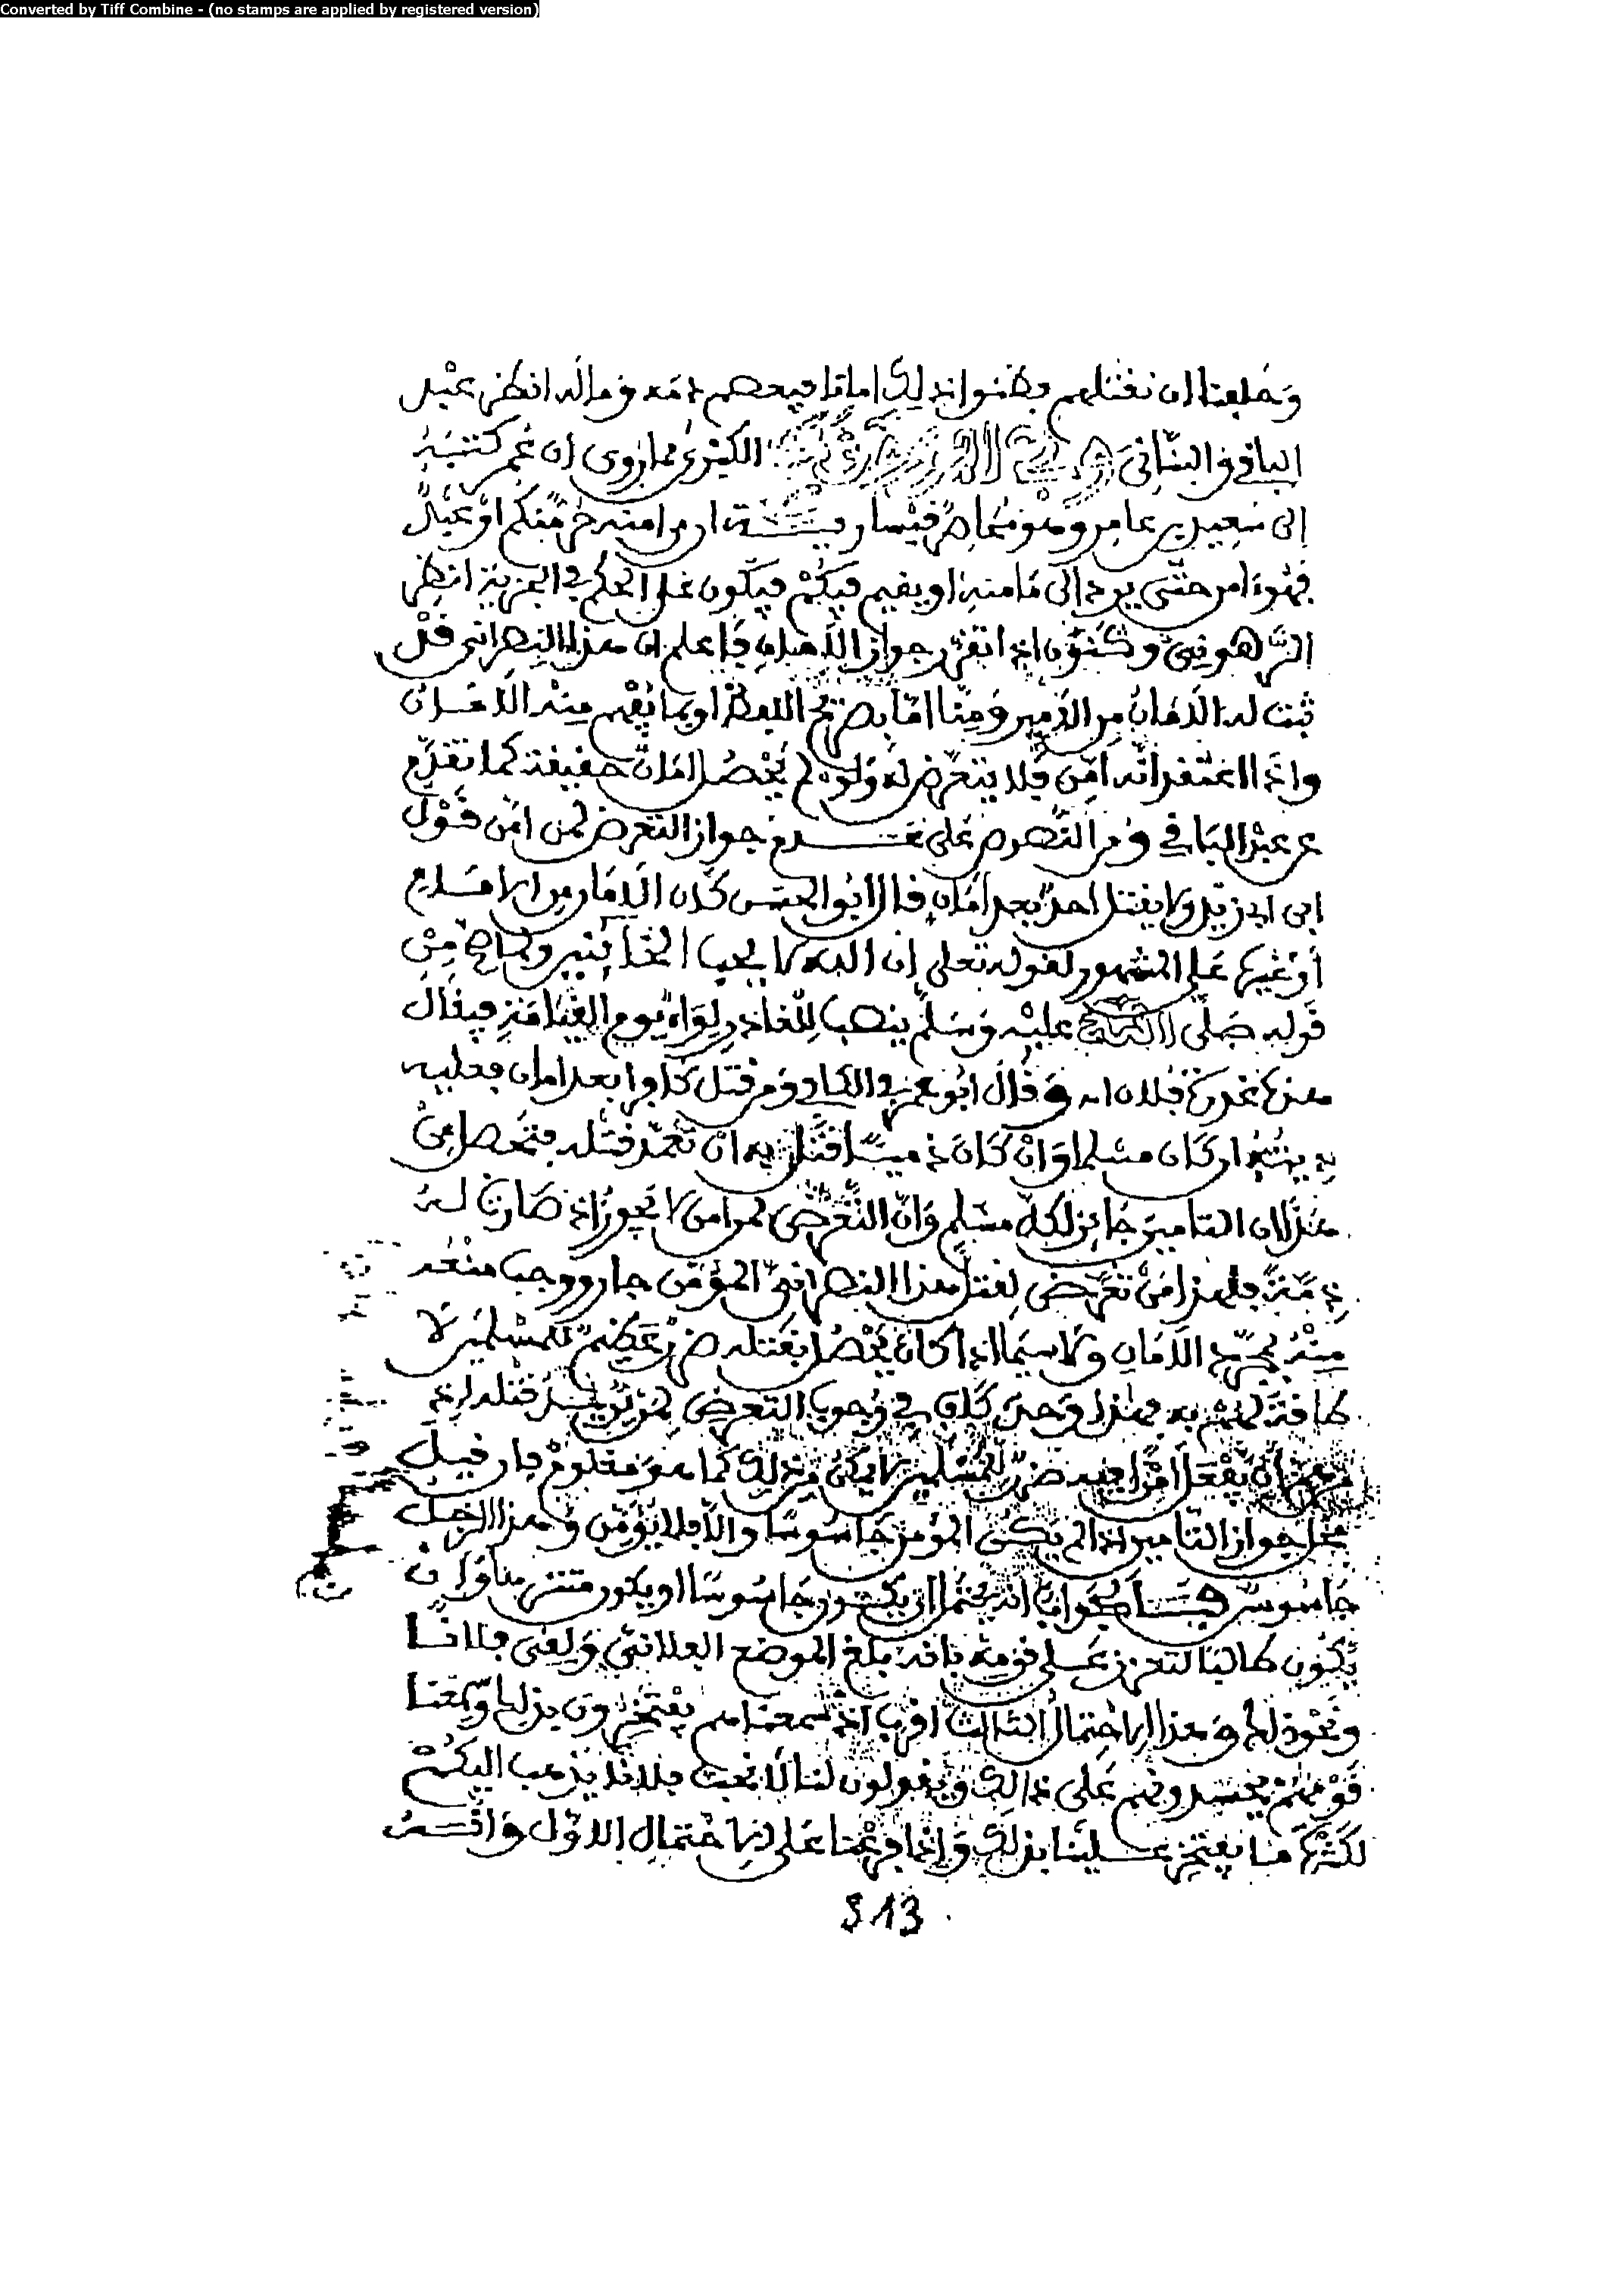 Converted by Tiff Combine - (no stamps are applied by registered version)
وحلفنا ان نقتلهم فظنوا ذلك امانا فيعصم دمه وماله انظر عبد
الباقي والبناني الكبرى مما روي ان عمر كتب
الى سعيد بن عامر وهو محاصر قيسارية ان من امنه حر منكم او عبد
فهو ءامن حتى يرد الى مامنه او يقيم فيكم فيكون على الحكم في الجزية انظر
الرهوني وكنون اذا تقرر جواز الامان فاعلم ان هذا النصراني قد
ثبت له الامان من الامير ومنا اما بصريح اللفظ او بما يفهم منه الامان
واذا اعتقد انه امن فلا يتعرض له ولو لم يحصل امان حقيقة كما تقدم
عن عبد الباقي ومن النصوص على عدم جواز التعرض لمن امن قول
ابي زيد ولا يقتل احد بعد امان قال ابو الحسن كان الامان من الامام
او غيره على المشهور لقوله تعلى ان الله لا يحب الخائنين ولما صح من
قوله صلى الله عليه وسلم ينصب للغادر لواء يوم القيامة فيقال
هذه غدرة فلان اه وقال ابو عمر في الكافي ومن قتل كافرا بعد امان فعليه
ديته ان كان مسلما وان كان ذميا قتل به ان تعمد قتله فتحصل من
هذا ان التامين جائز لكل مسلم وان التعرض لمن امن لا يجوز اذ صارت له
ذمة فلهذا من تعرض لقتل هذا النصراني المؤمن جار ووجب منعه
منه بمجرد الامان ولا سيما اذا كان يحصل بقتله ضرر عظيم للمسلمين لا
طاقة لهم به فهذا وحده كاف في وجوب التعرض لمن يريد قتله اذ
ان يفعل امرا فيه ضرر للمسلمين لا يمكن من ذلك كما هو معلوم فان قيل
محل جواز التامين اذا لم يكن المؤمن جاسوسا والا فلا يؤمن وهذا الرجل
جاسوس فالجواب انه يحتمل ان يكون جاسوسا او يكون متنزها وان
يكون طالبا لتعزز على قومه بانه بلغ الموضع الفلاني ولقي فلانا
ونحو ذلك وهذا الاحتمال الثالث اقرب اذ سمعناهم يفتخرون بذلك وسمعنا
قومهم يحسدونهم على ذالك ويقولون لنا لا نحب فلانا يذهب اليكم
لكثرة ما يفتخر علينا بذلك واذا فرعنا على الاحتمال الاول وانه
313